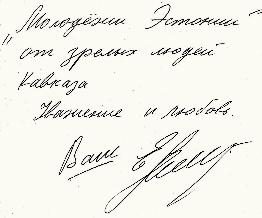 „Молодёжи Эстонии"
от зрелых людей
Кавказа
Уважение и любовь.
Ваш